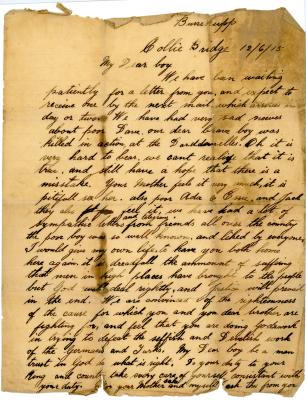 Burrekupp
Collie Bridge 12/6/15
My Dear boy
We have been waiting
patiently for a letter from you, and expect to
receive one by the next mail which arrives in a
day or two. We have had very sad news
about poor Dave, our dear brave boy was
killed in action at the Dardanelles. Oh it is
very hard to bear, we cant realise that it is
true, and still have a hope that there is a
mistake. Your Mother feels it very much, it is
pitifull to her. also poor Ada &
they also feel it, we have had a lot of
sympathetic letters from friends all over the country
the poor boy was well known, and liked by everyone.
I would give my own life to have you both home
here again it is dreadfull the ammount of suffering
that men in high places have brought to the people
but God will deal rightly, and justly will prevail
in the end. We are convinced of the righteousness
of the cause for which you and you dear brother are
fighting for, and feel that you are doing Gods work
in trying to defeat the selfish and Devilish work
of the Germans and Turks. My Dear boy be a man
trust in God do what is right, do your duty to your
King and country take every care of yourself consistent with
your duty. your Mother and myself ask the from you